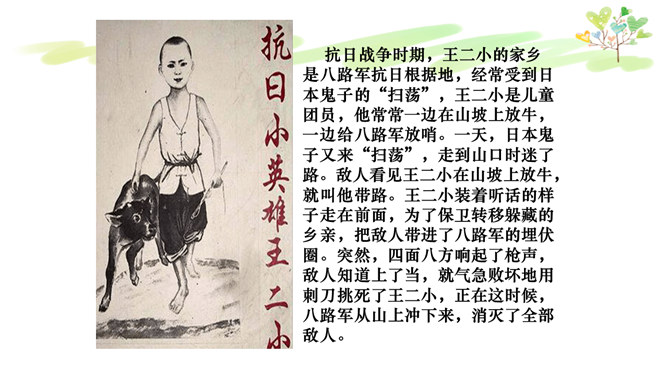 抗日小英雄王二小
抗日战争时期，王二小的家乡
是八路军抗日根据地，经常受到日
本鬼子的“扫荡”，王二小是儿童
团员，他常常一边在山坡上放牛，
一边给八路军放哨。一天，日本鬼
子又来“扫荡”，走到山口时迷了
路。敌人看见王二小在山坡上放牛，
就叫他带路。王二小装着听话的样
子走在前面，为了保卫转移躲藏的
乡亲，把敌人带进了八路军的埋伏
圈。突然，四面八方响起了枪声，
敌人知道上了当，就气急败坏地用
刺刀挑死了王二小，正在这时候，
八路军从山上冲下来，消灭了全部
敌人。